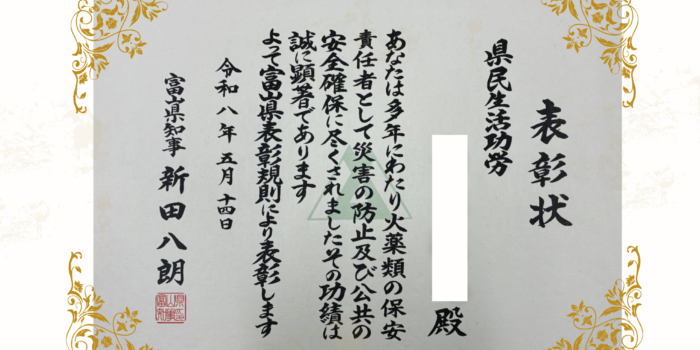 表彰状
県民生活功労
殿
あなたは多年にわたり火薬類の保安
責任者として災害の防止及び公共の
安全確保に尽くされましたその功績は
誠に顕著であります
よって富山県表彰規則により表彰します
令和八年五月十四日
富山県知事 新田八朗